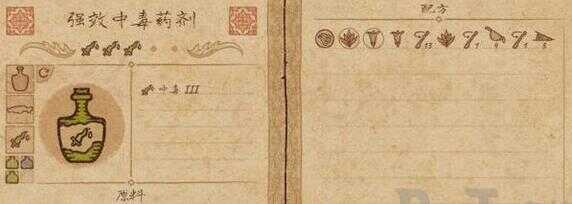 强效中毒药剂
中毒 III
原料
配方
13 1 9 1 5